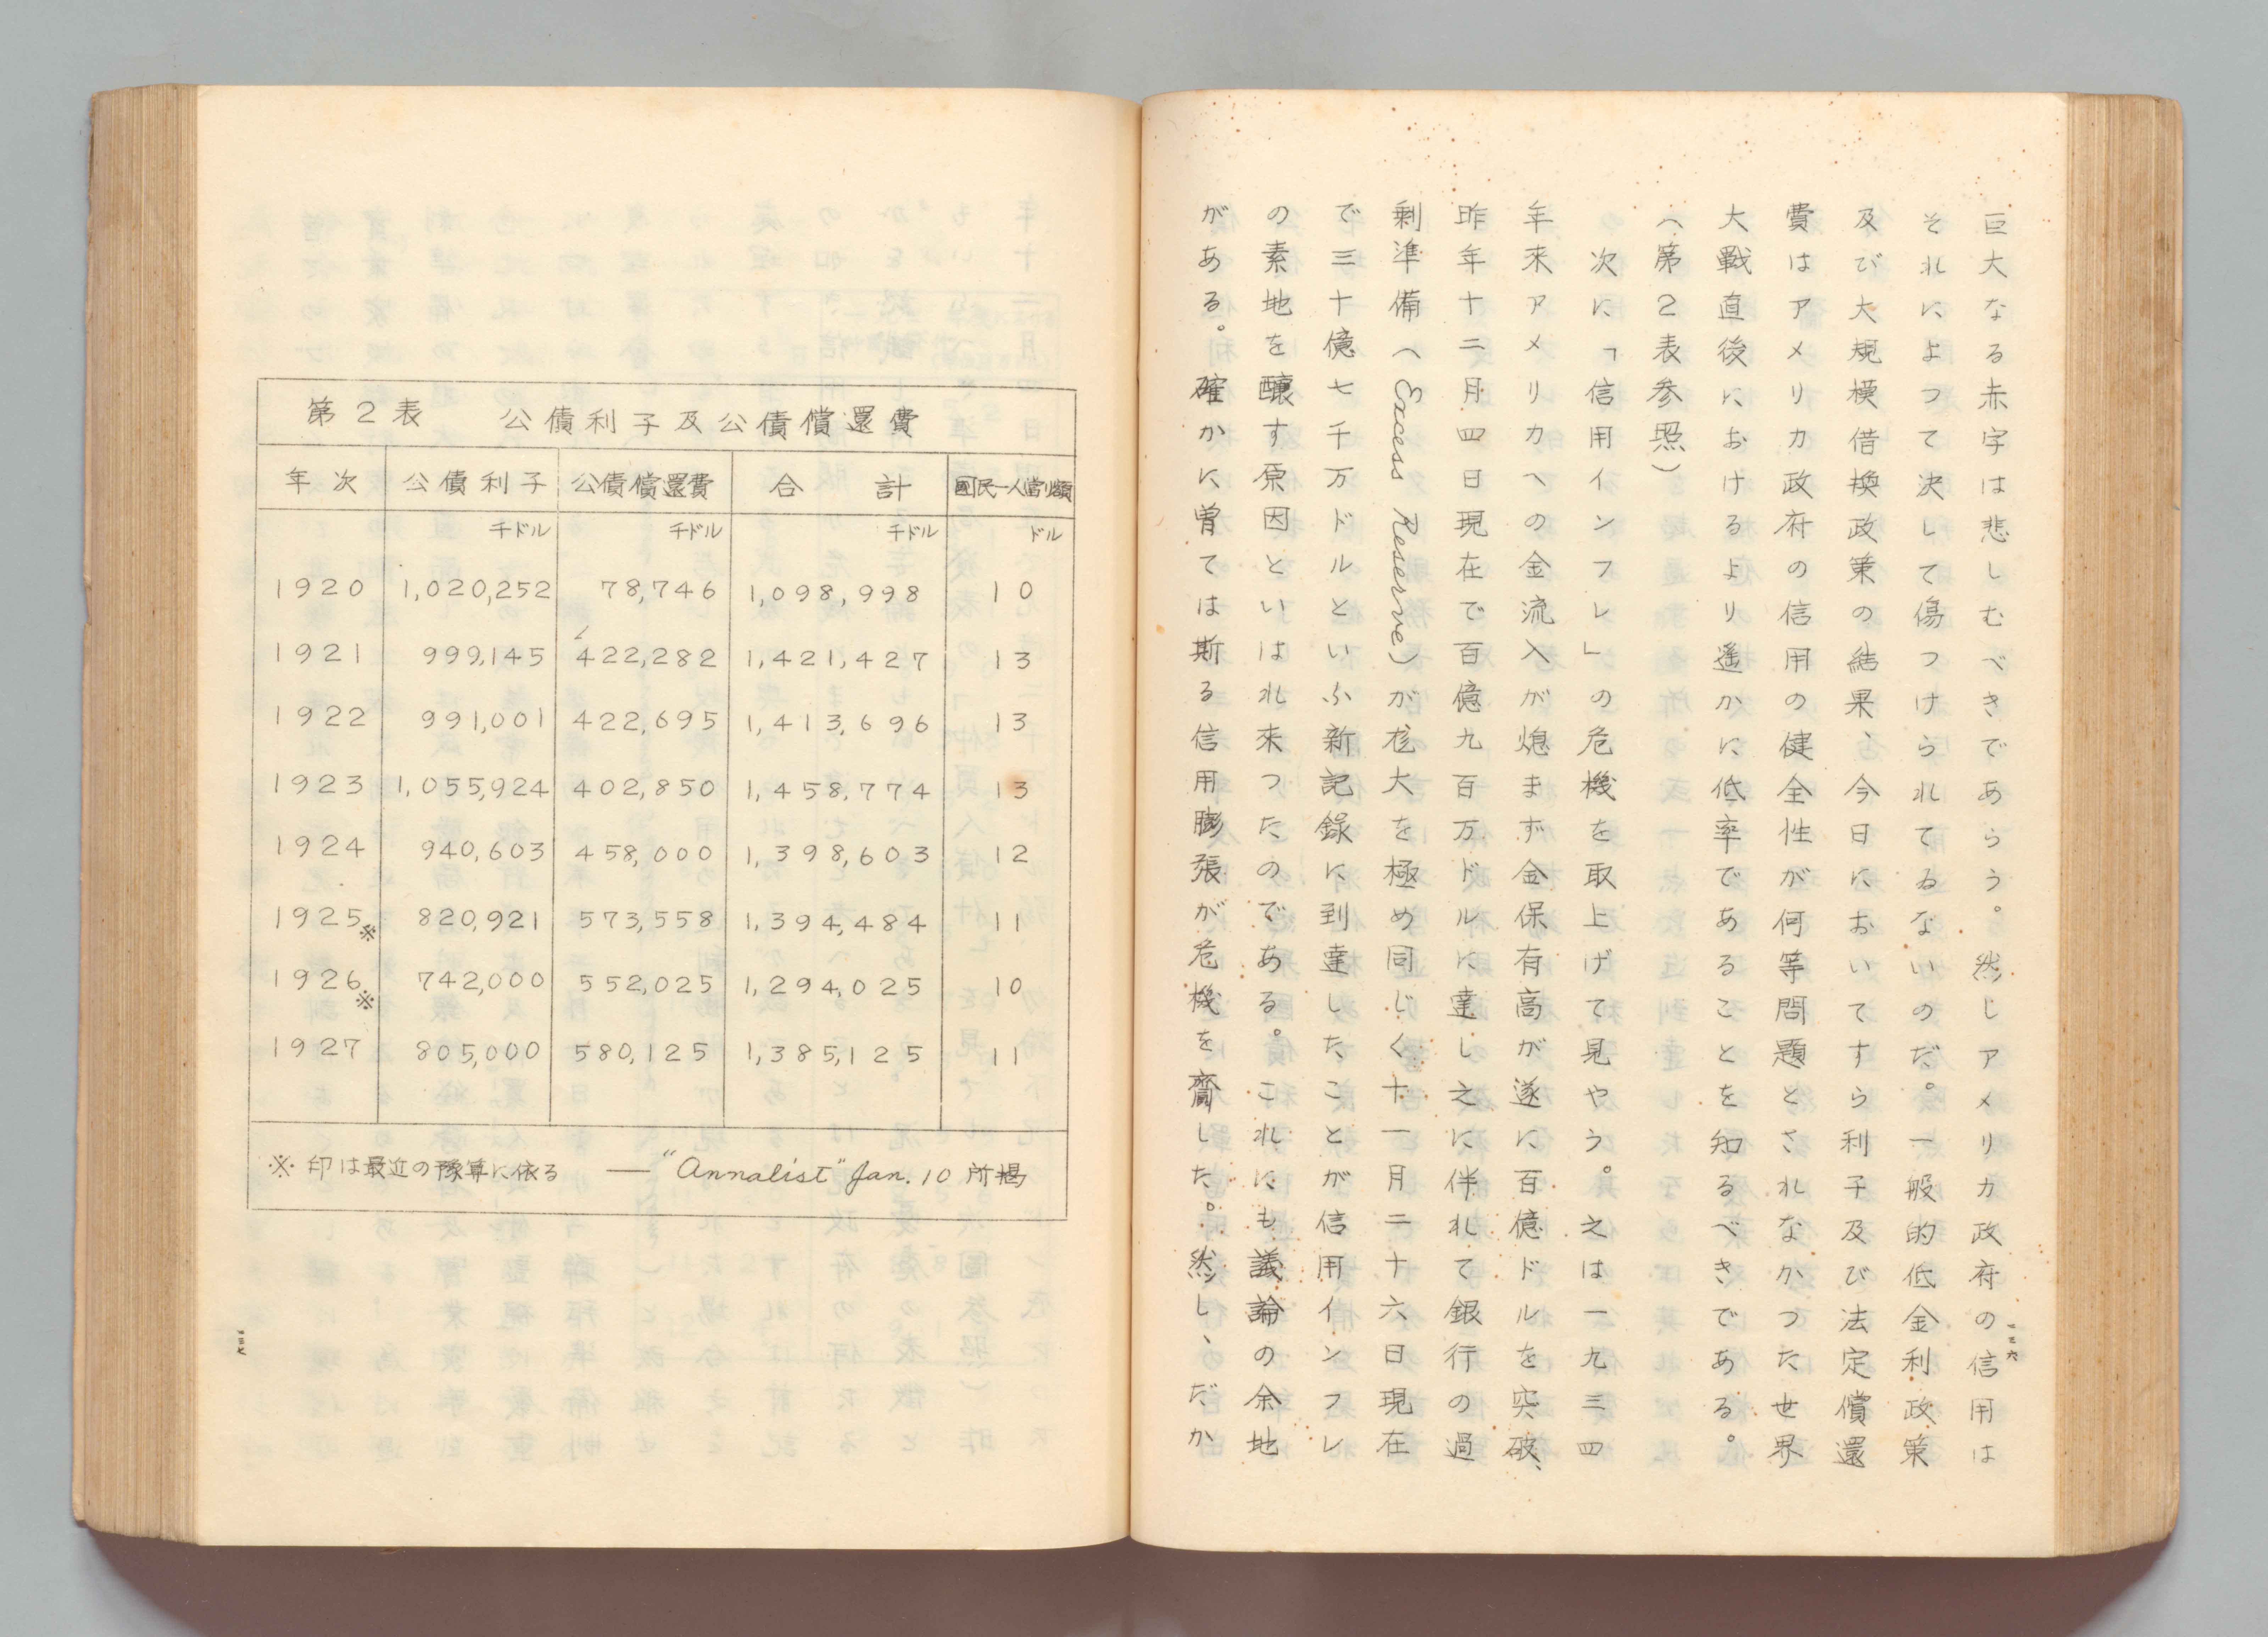 一三六
巨大なる赤字は悲しむべきであらう。然しアメリカ政府の信用は
それによつて決して傷つけられてゐないのだ。一般的低金利政策
及び大規模借換政策の結果、今日においてすら利子及び法定償還
費はアメリカ政府の信用の健全性が何等問題とされなかつた世界
大戰直後におけるより遥かに低率であることを知るべきである。
(第2表参照)
次に「信用インフレ」の危機を取上げて見やう。之は一九三四
年来アメリカへの金流入が熄まず金保有高が遂に百億ドルを突破、
昨年十二月四日現在で百億九百万ドルに達し之に伴れて銀行の過
剰準備(Excess Reserve)が厖大を極め同じく十一月二十六日現在
で三十億七千万ドルといふ新記錄に到達したことが信用インフレ
の素地を釀す原因といはれ来つたのである。これにも議論の余地
がある。確かに曽ては斯る信用膨張が危機を齎した。然し、だか
第2表 公債利子及公債償還費
年次 公債利子 公債償還費 合計 國民一人當リ額
千ドル 千ドル 千ドル ドル
1920 1,020,252 78,746 1,098,998 10
1921 999,145 422,282 1,421,427 13
1922 991,001 422,695 1,413,696 13
1923 1,055,924 402,850 1,458,774 13
1924 940,603 458,000 1,398,603 12
1925※ 820,921 573,558 1,394,484 11
1926※ 742,000 552,025 1,294,025 10
1927 805,000 580,125 1,385,125 11
※印は最近の豫算に依る ——"Annalist" Jan. 10 所揭
一三七